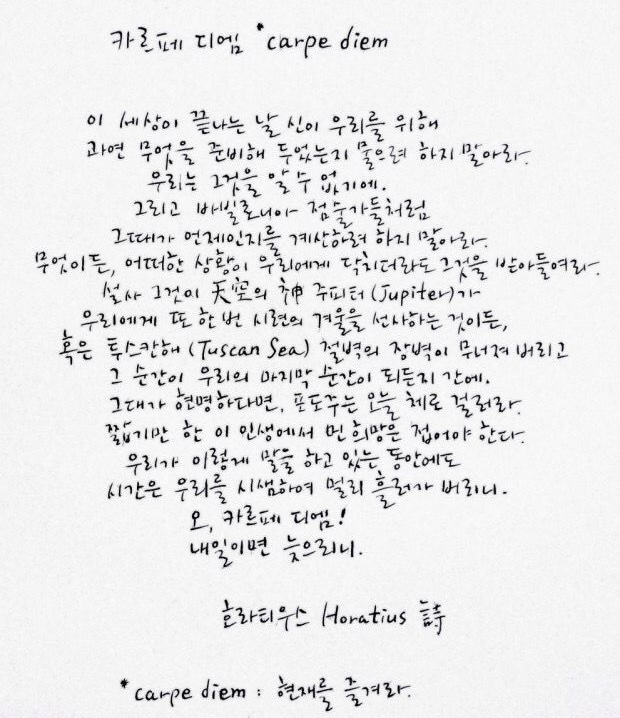 카르페 디엠 *carpe diem
이 세상이 끝나는 날 신이 우리를 위해
과연 무엇을 준비해 두었는지 물으려 하지 말아라.
우리는 그것을 알 수 없기에.
그리고 바빌로니아 점술가들처럼
그때가 언제인지를 계산하려 하지 말아라.
무엇이든, 어떠한 상황이 우리에게 닥치더라도 그것을 받아들여라.
설사 그것이 天空의 神 주피터(Jupiter)가
우리에게 또 한 번 시련의 겨울을 선사하는 것이든,
혹은 투스칸해(Tuscan Sea) 절벽의 장벽이 무너져 버리고
그 순간이 우리의 마지막 순간이 되든지 간에.
그대가 현명하다면, 포도주는 오늘 체로 걸러라.
짧기만 한 이 인생에서 먼 희망은 접어야 한다.
우리가 이렇게 말을 하고 있는 동안에도
시간은 우리를 시샘하여 멀리 흘러가 버리니.
오, 카르페 디엠!
내일이면 늦으리니.
호라티우스 Horatius 詩
*carpe diem : 현재를 즐겨라.